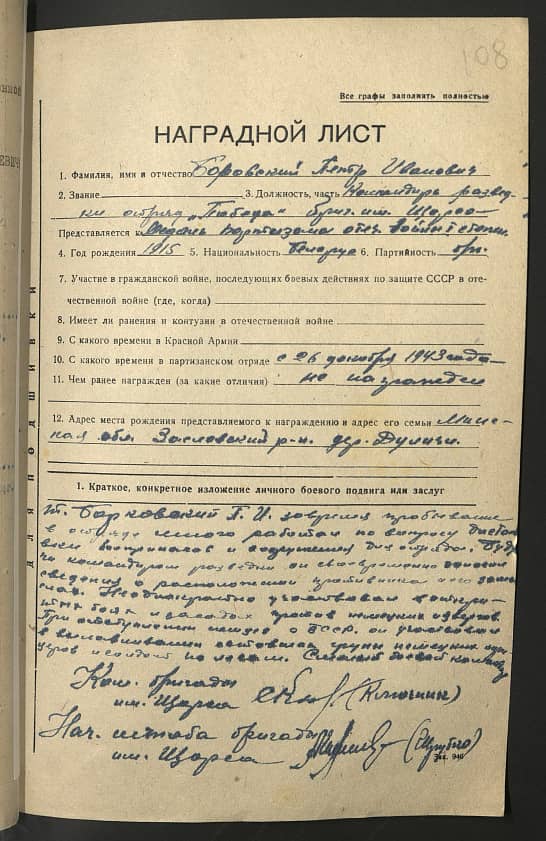 108
Все графы заполнять полностью
НАГРАДНОЙ ЛИСТ
1. Фамилия, имя и отчество Боровский Петр Иванович
2. Звание 3. Должность, часть Командиръ развед-
ки отряд „Победа" бриг. им. Щорса
Представляется к медаль партизана отеч. войны I степени
4. Год рождения 1915 5. Национальность белорус 6. Партийность
7. Участие в гражданской войне, последующих боевых действиях по защите СССР в оте-
чественной войне (где, когда)
8. Имеет ли ранения и контузии в отечественной войне
9. С какого времени в Красной Армии
10. С какого времени в партизанском отряде с 26 декабря 1943 года
11. Чем ранее награжден (за какие отличия) не награжден
12. Адрес места рождения представляемого к награждению и адрес его семьи Минс-
кая обл. Заславский р-н. дер.
1. Краткое, конкретное изложение личного боевого подвига или заслуг
т. Борковский П. И. за время пребывания
в отряде много работал по вопросу достав
ки боеприпасов и вооружения для отряда. Буду
чи командиром разведки он своевременно
сведения о расположении противника и его
Неоднократно участвовал в
боях и засадах против немецких
При отступлении немцев с БССР. он участвовал
в вылавливании группы немецких
по лесам. Смелый боевой командир
Ком. бригады
им. Щорса
Нач. штаба бригады
им. Щорса
Зак. 946
ДЛЯ ПОДШИВКИ